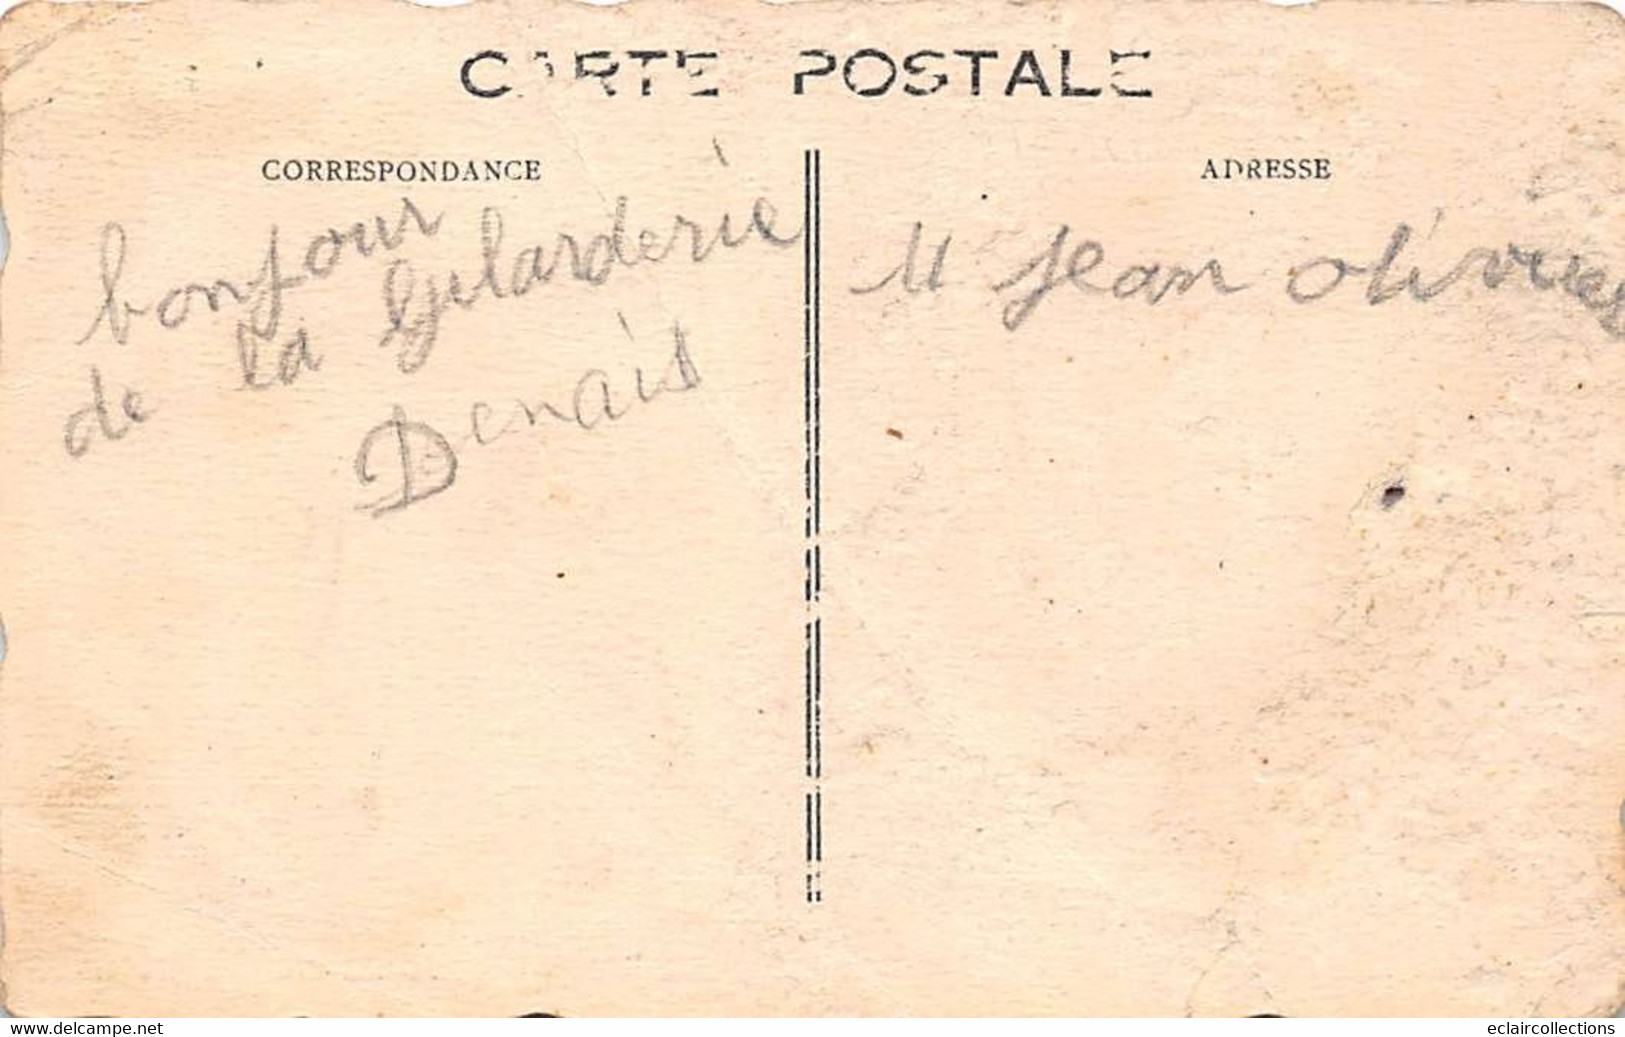 CARTE POSTALE
CORRESPONDANCE
bonjour
de la Gilarderie
Denais
ADRESSE
M Jean
www.delcampe.net
eclaircollections